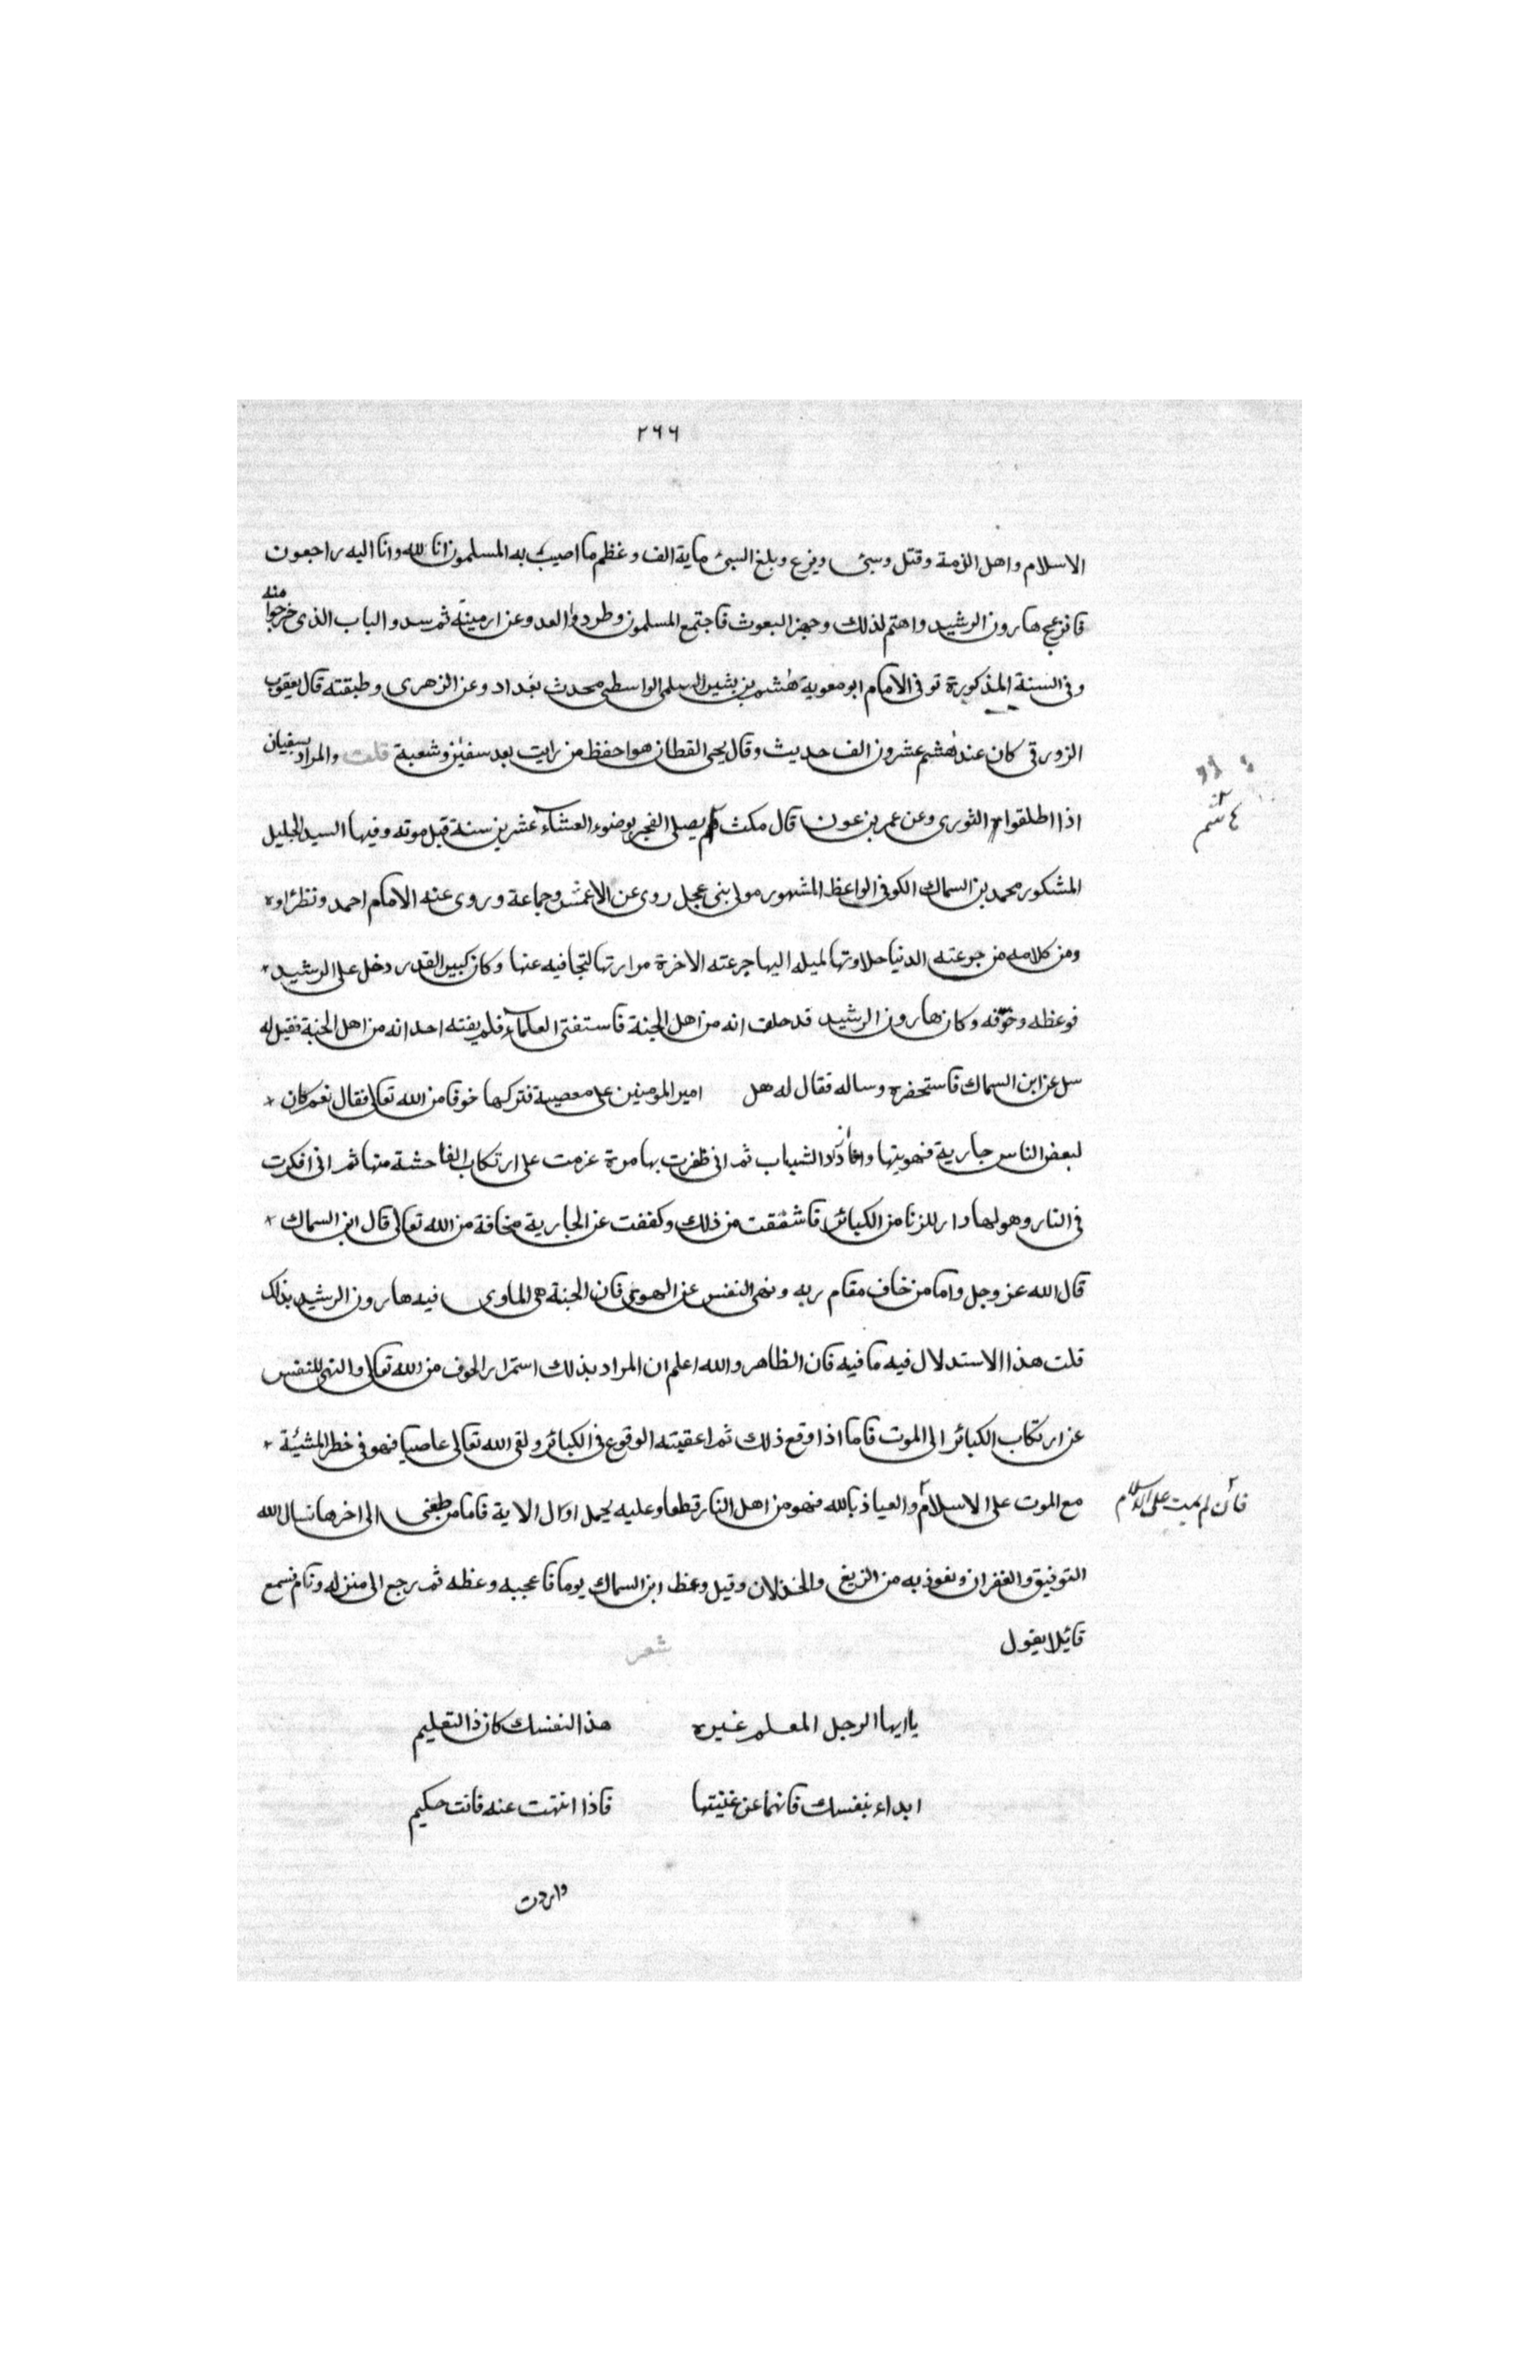 ٢٦٦
الاسلام واهل الذمة وقتل وسبى وبزع وبلغ السبى ماية الف وعظم ما اصيب به المسلمون انا لله وانا اليه راجعون
فانزعج هارون الرشيد واهتم لذلك وجهز البعوث فاجتمع المسلمون وطردوا العدو عن ارمينة ثم سدو الباب الذى خرجوا منه
وفى السنة المذكورة توفى الامام ابو معوية هشيم بن بشير السلمى الواسطى محدث بغداد وعن الزهرى وطبقته قال يعقوب
الزورقى كان عند هشيم عشرون الف حديث وقال يحيى القطان هو احفظ من رايت بعد سفين وشعبة قلت والمراد بسفيان
اذا اطلقوا الثورى وعن عمر بن عون قال مكث يصلى الفجر بوضوء العشاء عشرين سنة قبل موته وفيها السيد الجليل
هشيم
المشكور محمد بن السماك الكوفى الواعظ المشهور مولى بنى عجل روى عن الاعمش وجماعة وروى عنه الامام احمد ونظراوه
ومن كلامه من جرعته الدنيا حلاوتها لميله اليها جرعته الاخرة مرارتها لتجافيه عنها وكان كبير القدر دخل على الرشيد
فوعظه وخوفه وكان هارون الرشيد قد حلف انه من اهل الجنة فاستفتى العلماء فلم يفته احد انه من اهل الجنة فقيل له
سل عن ابن السماك فاستحضره وساله فقال له هل امير المومنين على معصية فتركها خوفا من الله تعالى فقال نعم كان
لبعض الناس جارية فهويتها وانا اذ ذاك الشباب ثم انى ظفرت بها مرة عزمت على ارتكاب الفاحشة منها ثم انى افكرت
فى النار وهولها دار للزنا من الكبائر فاشفقت من ذلك وكففت عن الجارية مخافة من الله تعالى قال ابن السماك
قال الله عز وجل واما من خاف مقام ربه ونهى النفس عن الهوى فان الجنة هى الماوى فيه هارون الرشيد بذلك
قلت هذا الاستدلال فيه ما فيه فان الظاهر والله اعلم ان المراد بذلك استمرار الخوف من الله تعالى والنهى للنفس
عن ارتكاب الكبائر الى الموت فاما اذا وقع ذلك ثم اعقيته الوقوع فى الكبائر ولقى الله تعالى عاصيا فهو فى خطر المشيئة
مع الموت على الاسلام والعياذ بالله فهو من اهل النار قطعا وعليه يحمل اوال الاية فاما من طغى الى اخرها نسال الله
فان لم يمت على الاسلام
التوفيق والغفران ونعوذ به من الزيغ والخذلان وقيل وعظ ابن السماك يوما فاعجبه وعظه ثم رجع الى منزله ونام فسمع
قائلا يقول شعر
يا ايها الرجل المعلم غيره هذا لنفسك كان ذا التعليم
ابداء بنفسك فانها عن غيتها فاذا انتهت عنه فانت حكيم
واردت